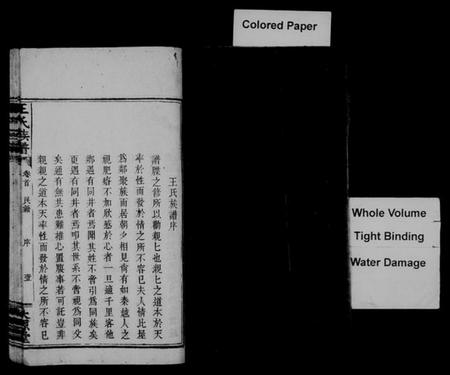 Colored Paper
Whole Volume
Tight Binding
Water Damage
王氏族譜序
譜牒之修所以勸親親也親親之道本於天
率於性而發於情之所不容已夫人情比屋
為鄰聚族而居朝夕相見尚有如秦越人之
視肥瘠不加欣慼於心者一旦適千里客他
鄉遇有同井者為聞其姓不啻引為同族矣
更遇有同井者為叩其世系不啻視為同父
矣通有無共患難推心置腹事若可託豈非
親親之道本天率性而發於情之所不容已
王氏族譜
卷首
民
序
壹